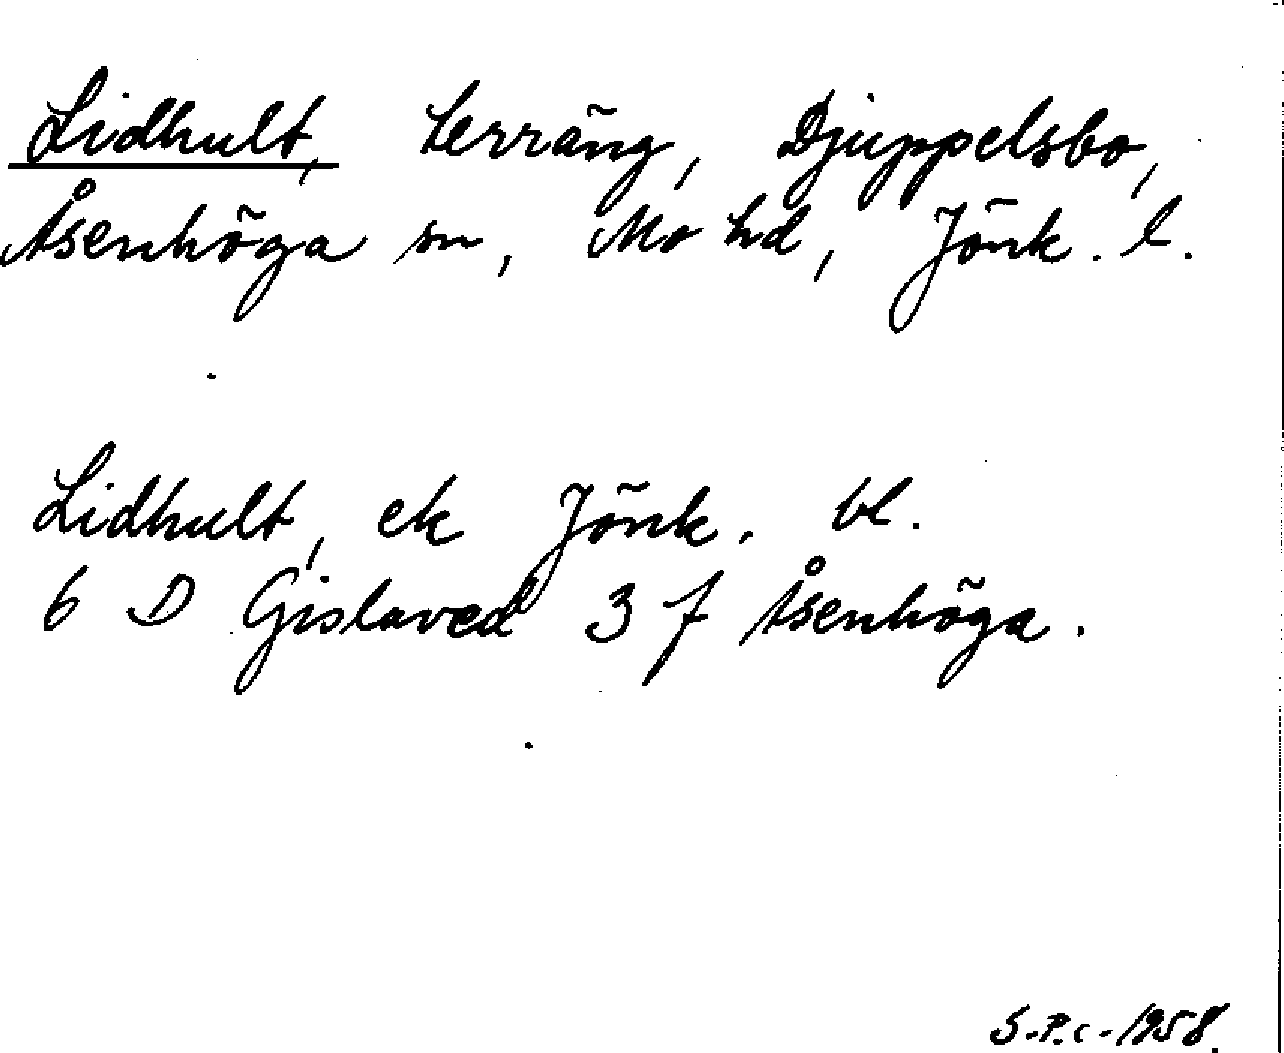 Lidhult, terräng, Djuppelsbo,
Åsenhöga sn, Mo hd, Jönk. l.
Lidhult, ek Jönk. bl.
6 D Gislaved 3 f Åsenhöga.
S-P.c-1958.